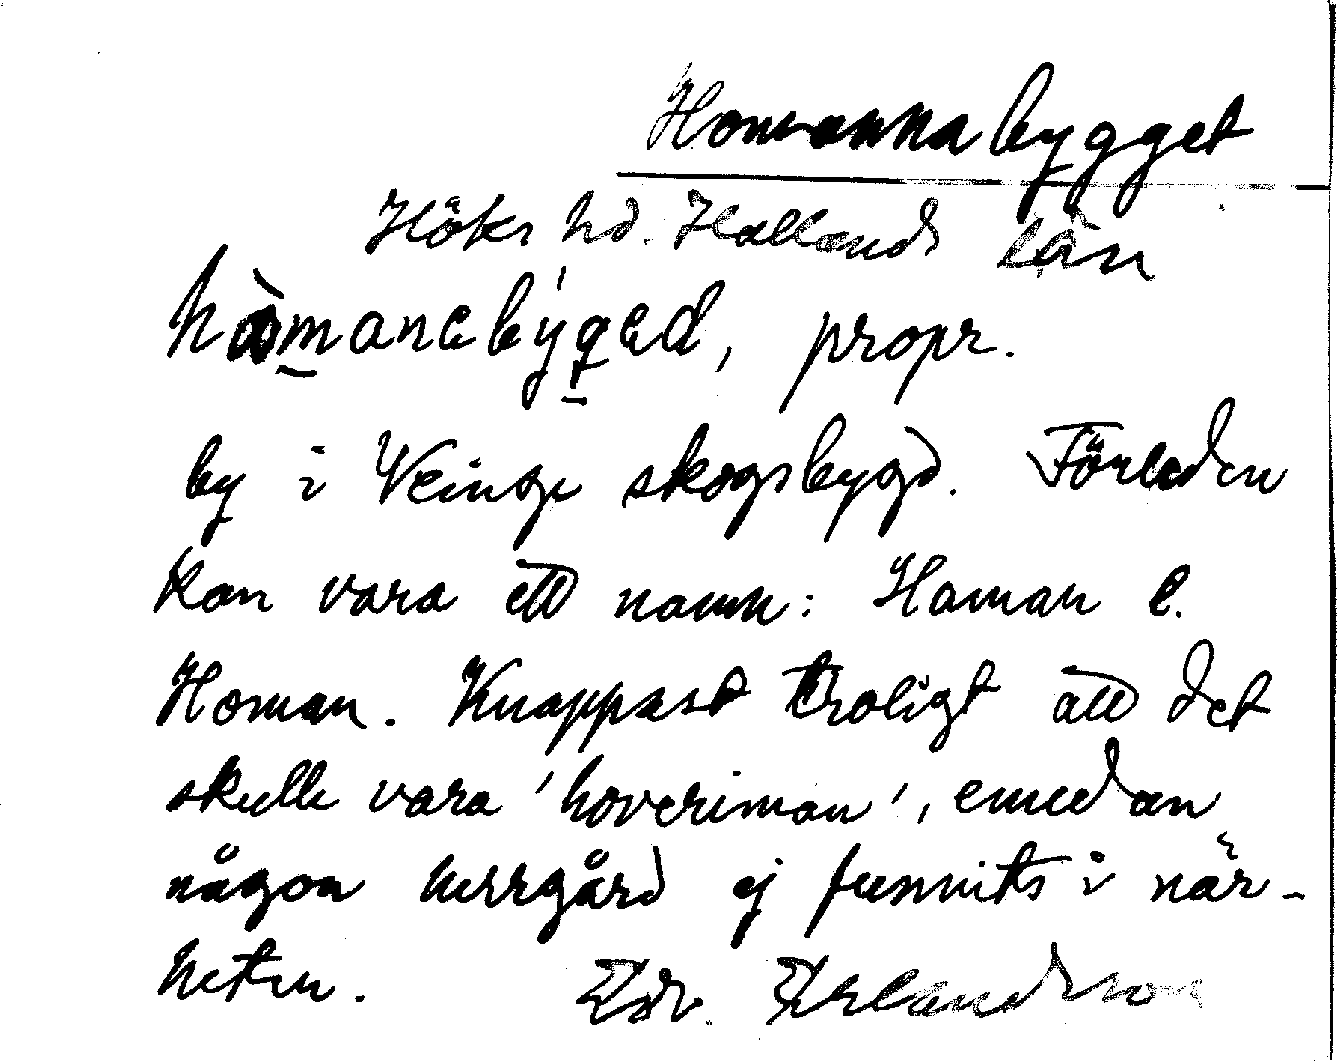 Homannabygget
Höks hd. Hallands län
hòmanabýged, propr.
by i Veinge skogsbygd. Förleden
kan vara ett namn: Haman l.
Homan. Knappast troligt att det
skulle vara 'hoveriman', emedan
någon herrgård ej funnits i när-
heten. Edv. Erlandsson